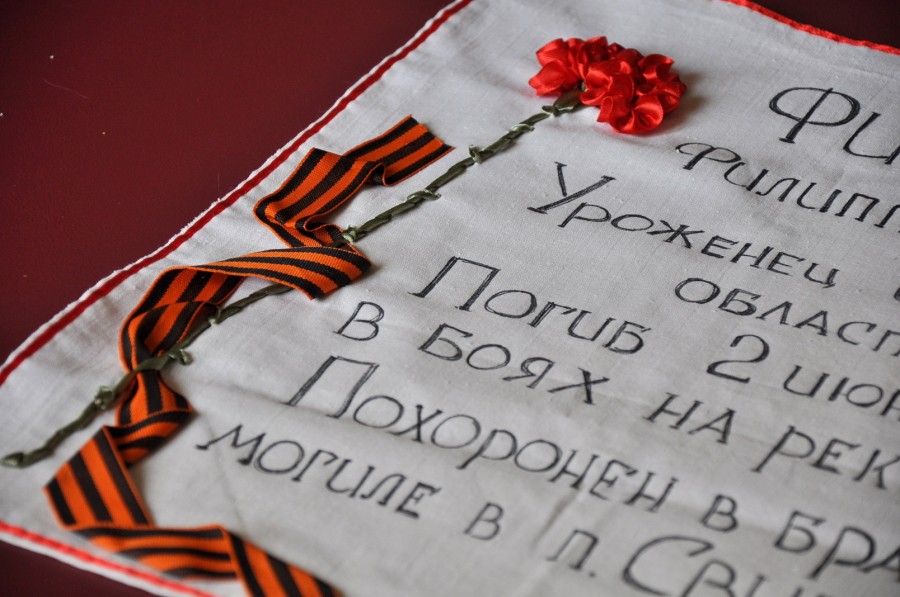 Фи
Филипп
Уроженец
област
Погиб 2 июн
в боях на рек
Похоронен в бра
могиле в п. Сви